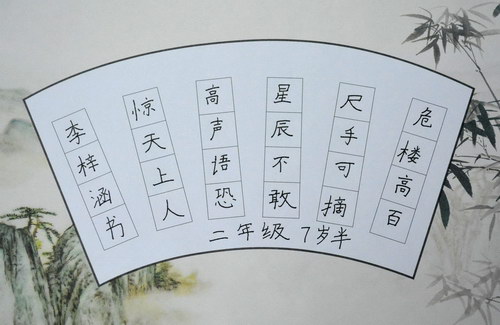 危楼高百
尺手可摘
星辰不敢
高声语恐
惊天上人
李梓涵书
二年级 7岁半